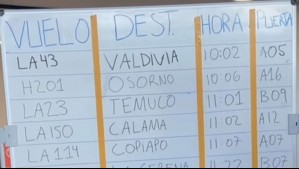 VUELO DEST. HORA PUERTA
LA43 VALDIVIA 10:02 A05
H201 OSORNO 10:06 A16
LA23 TEMUCO 11:01 B09
LA150 CALAMA 11:02 A12
LA114 COPIAPO 11:07 A07
LA SERENA 11:22 B07